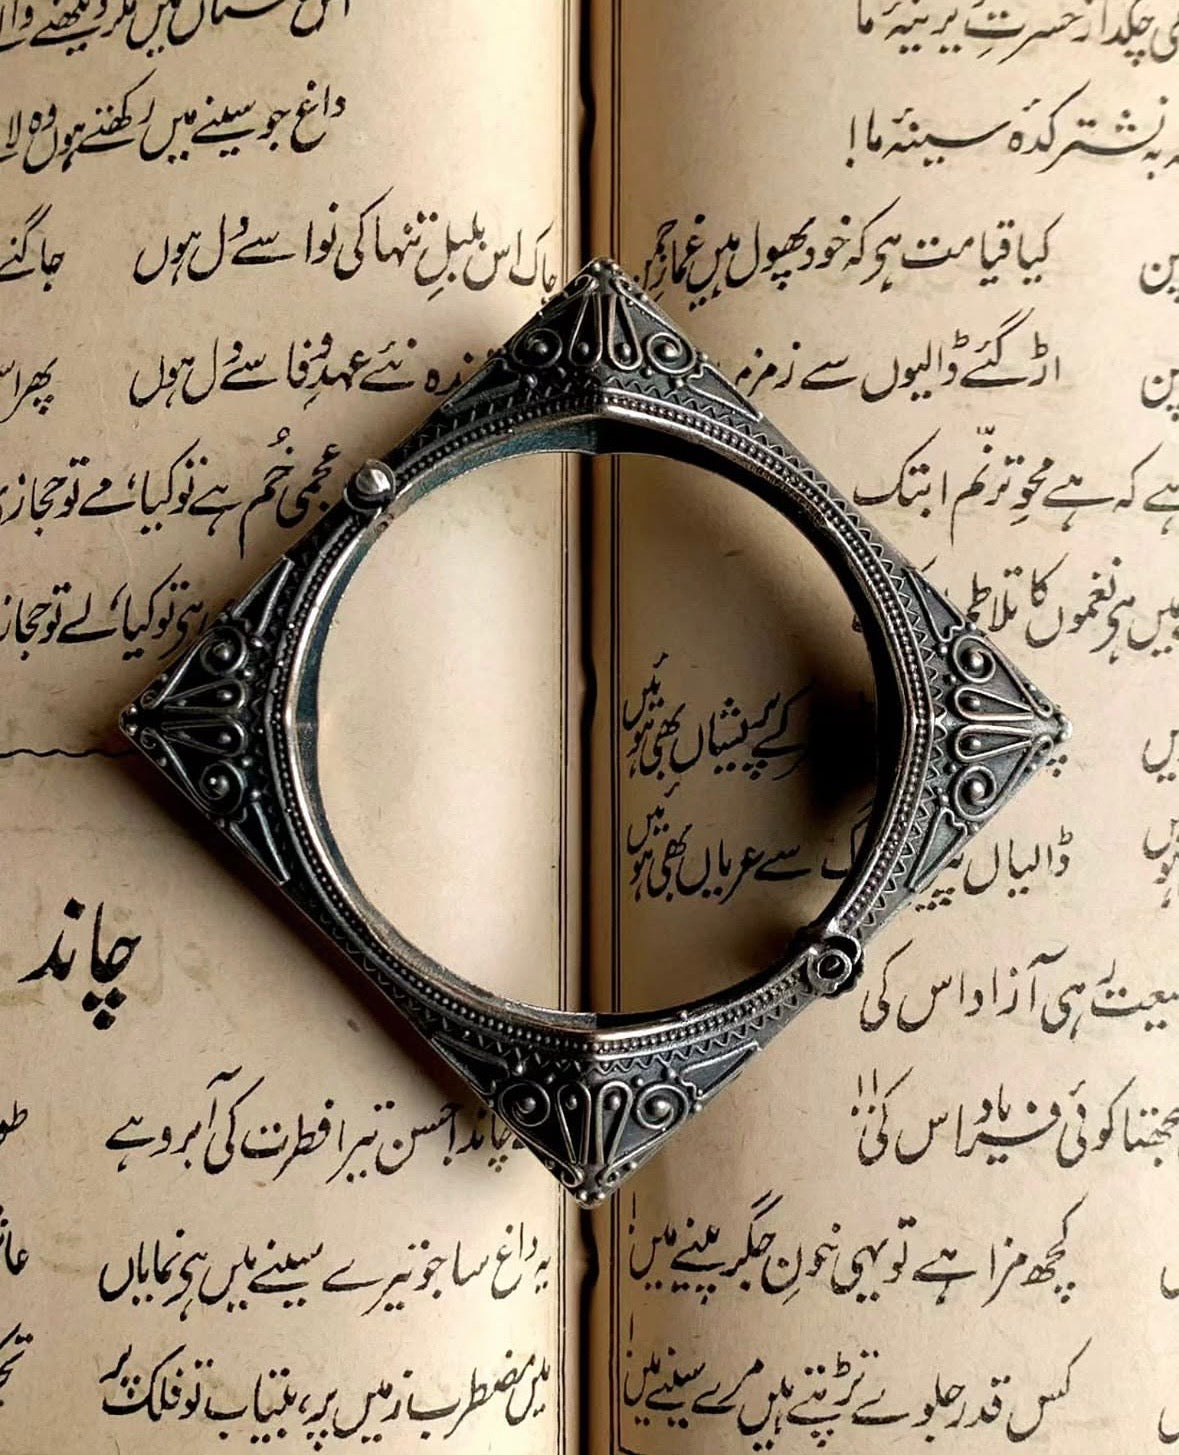 چکد از حسرتِ یرینۂ ما
بہ نشتر کدۂ سینۂ ما!
کیا قیامت ہی کہ خود پھول ہیں غمازِ چمن
اڑ گئے ڈالیوں سے زمزمہ
ہے کہ ہے محوِ ترنّم ابتک
میں ہی نغموں کا تلاطم
کے پریشاں بھی ہوئیں
ڈالیاں سے عریاں بھی ہوئیں
ہی آزاد اس کی
کوئی فریاد اس کی
کچھ مزا ہے تو یہی خونِ جگر پینے میں
کس قدر جلوے تڑپتے ہیں مرے سینے میں
میں مگر دیکھنے
داغ جو سینے میں رکھتے ہوں وہ
چاک اس بلبلِ تنہا کی نوا سے دل ہوں جاگنے
نئے عہدِ وفا سے دل ہوں پھر اس
عجمی خُم ہے تو کیا، مے تو حجازی
تو کیا، لے تو حجازی
چاند
چاند! حسن تیرا فطرت کی آبرو ہے
یہ داغ سا جو تیرے سینے میں ہی نمایاں
میں مضطرب زمیں پر، بیتاب تو فلک پر